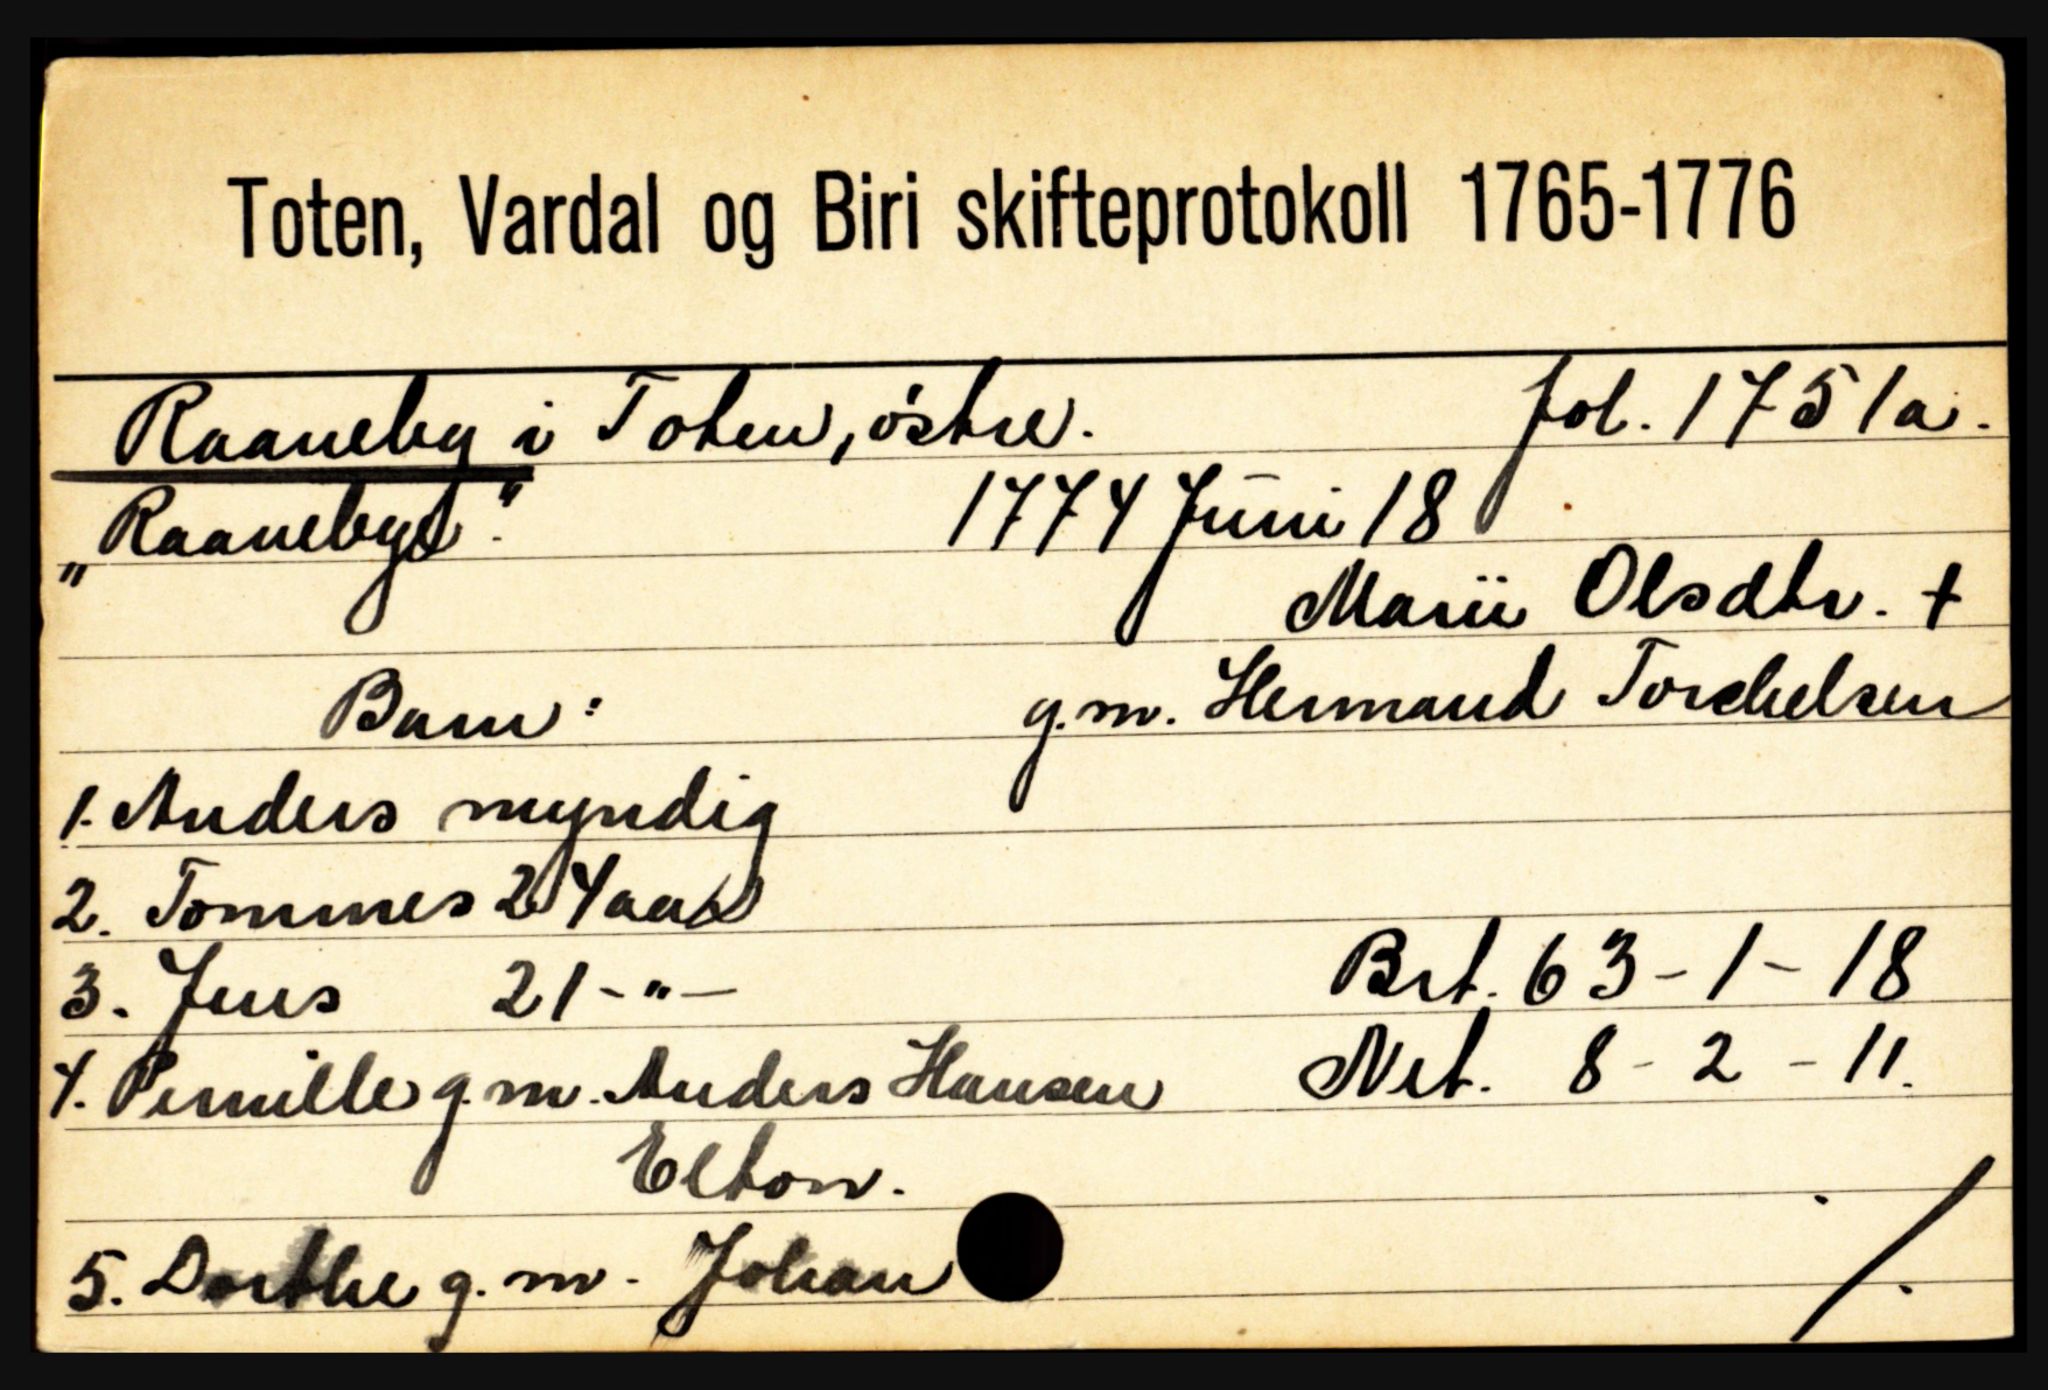 Toten, Vardal og Biri skifteprotokoll 1765-1776
Raaneby i Toten, østre. fol. 1751a.
"Raanebye". 1774 Juni 18
Marii Olsdtr. +
Barn: g.m. Hermand Torchelsen
1. Anders myndig
2. Tommes 24 aar
3. Jens 21 - " - Brt. 63 - 1 - 18
4. Pernille g.m. Anders Hansen Net. 8 - 2 - 11.
Elton.
5. Dorthe g.m. Johan ./.